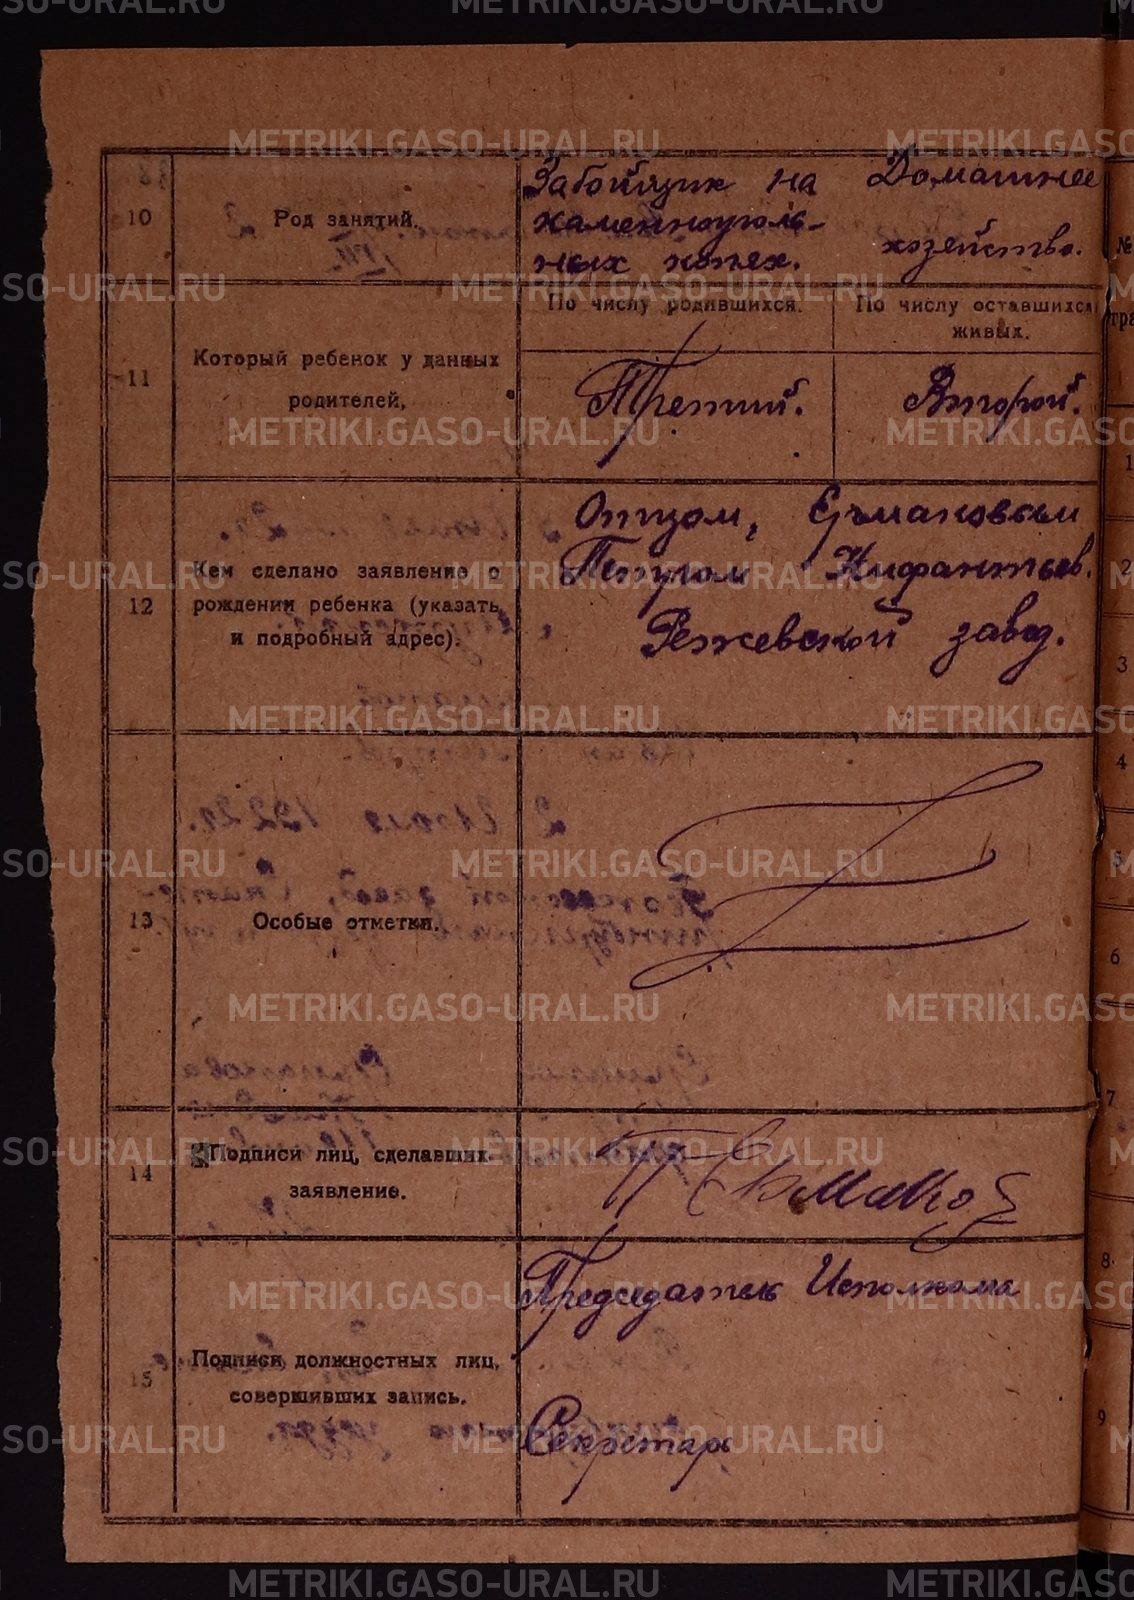 METRIKI.GASO-URAL.RU
10
Род занятий.
Забойщик на
каменноуголь-
ных копях.
Домашнее
хозяйство.
11
Который ребенок у данных
родителей,
По числу родившихся.
По числу оставшихся
живых.
Третий.
Второй.
12
Кем сделано заявление о
рождении ребенка (указать
и подробный адрес).
Отцом, Ермаковым
Петром Нифантьев.
Режевской завод.
13
Особые отметки.
14
Подписи лиц, сделавших
заявление.
П Ермаков
15
Подписи должностных лиц,
совершивших запись.
Председатель Исполкома
Секретарь
№
гра
1
2
3
4
5
6
7
8
9